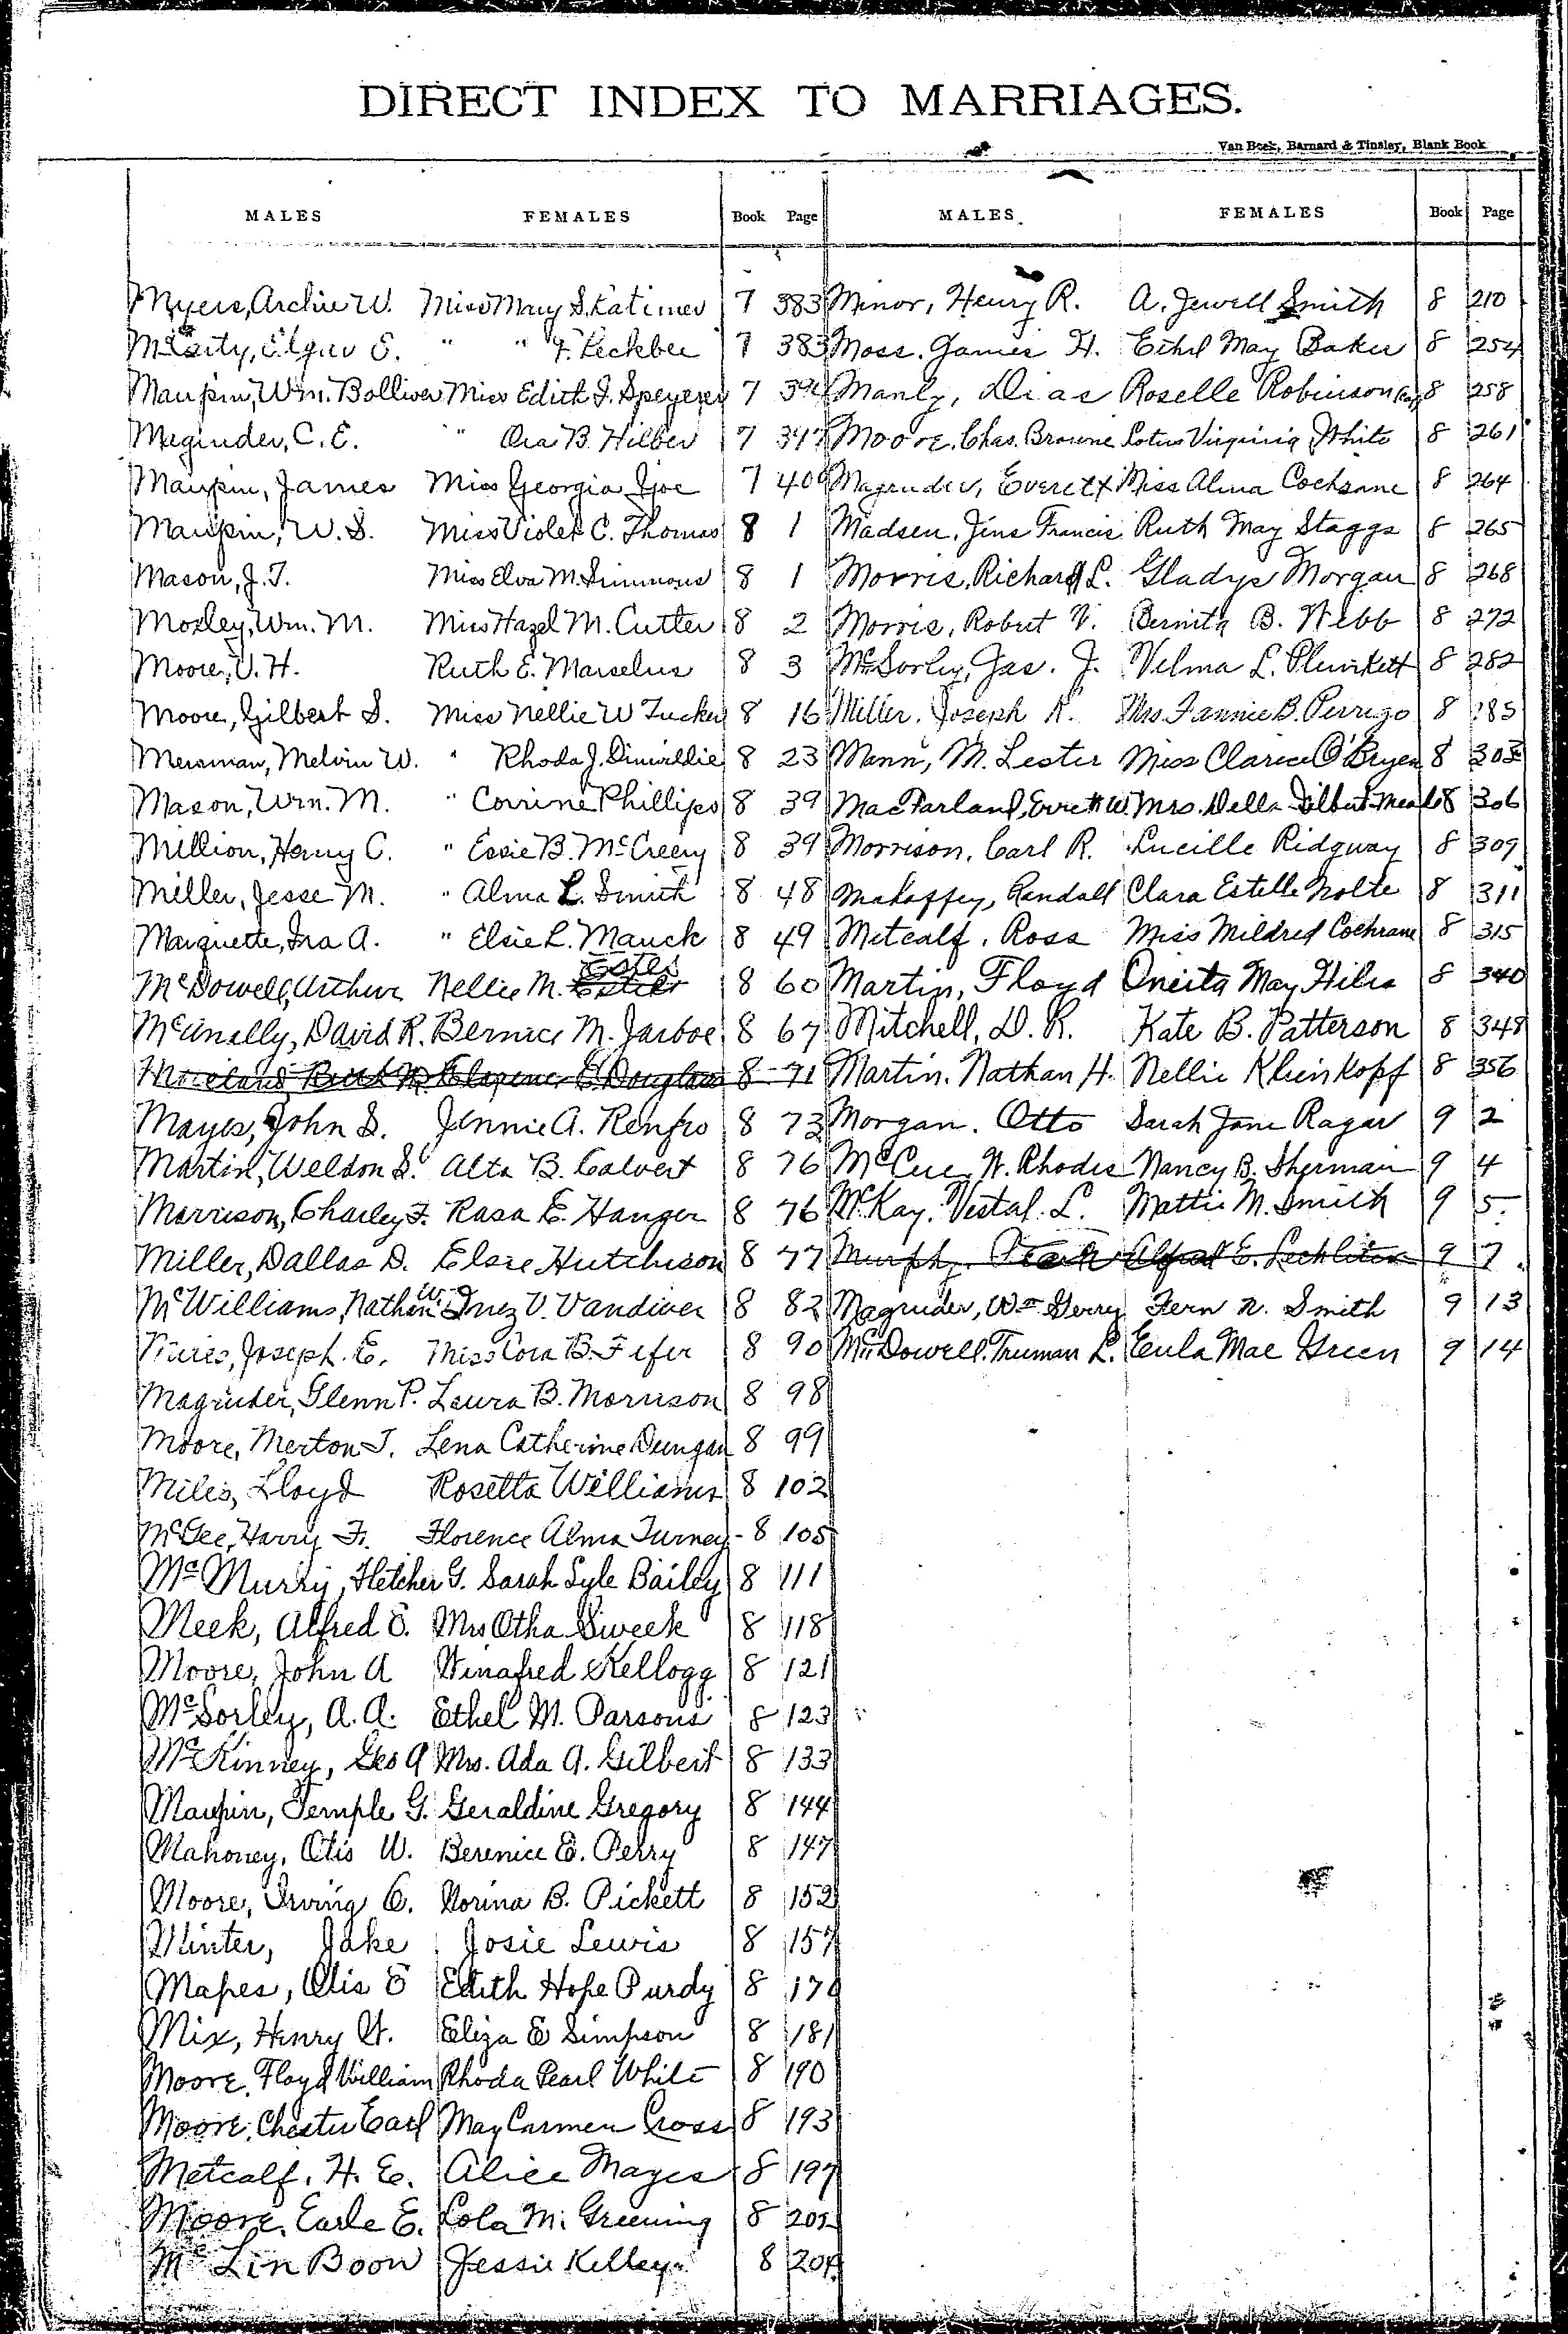 DIRECT INDEX TO MARRIAGES.
Van Beek, Barnard & Tinsley, Blank Book
MALES FEMALES Book Page MALES. FEMALES Book Page
Myers, Archie W. Miss Mary S. Latimer 7 383
McCarty, Elgar E. " " F. Heckber 7 383
Maupin, Wm. Bolliver Miss Edith I. Speyerer 7 394
Meginder, C. E. " Ora B. Hilber 7 397
Maupin, James Miss Georgia Igoe 7 400
Maupin, W. S. Miss Violet C. Thomas 8 1
Mason, J. T. Miss Elva M. Simmons 8 1
Moxley, Wm. M. Miss Hazel M. Cutler 8 2
Moore, V. H. Ruth E. Marselus 8 3
Moore, Gilbert S. Miss Nellie W Tucker 8 16
Mersman, Melvin W. " Rhoda J. Dinwiddie 8 23
Mason, Wm. M. " Corrine Phillips 8 39
Million, Henry C. " Essie B. McCreery 8 39
Miller, Jesse M. " Alma L. Smith 8 48
Marquette, Ira A. " Elsie L. Mauck 8 49
McDowell, Arthur Nellie M. Estes 8 60
McAnally, David R. Bernice M. Jarboe 8 67
Moreland Ruth M. Clarence E. Douglass 8 71
Mayes, John S. Jennie A. Renfro 8 73
Martin, Weldon S. Alta B. Calvert 8 76
Morrison, Charley F. Rasa E. Hanger 8 76
Miller, Dallas D. Elsie Hutchison 8 77
McWilliams, Nathan W. Inez V. Vandiver 8 82
Joseph. E. Miss Cora B. Fifer 8 90
Magruder, Glenn P. Laura B. Morrison 8 98
Moore, Merton J. Lena Catherine Dungan 8 99
Miles, Lloyd Rosetta Williams 8 102
McGee, Harry Fr. Florence Alma Turney - 8 105
McMurry, Fletcher G. Sarah Lyle Bailey 8 111
Meek, Alfred E. Mrs Otha Sweek 8 118
Moore, John A Winafred Kellogg 8 121
McSorley, A. A. Ethel M. Parsons 8 123
McKinney, Geo A Mrs. Ada A. Gilbert 8 133
Maupin, Temple G. Geraldine Gregory 8 144
Mahoney, Otis W. Berenice E. Perry 8 147
Moore, Irving C. Norina B. Pickett 8 152
Minter, Jake Josie Lewis 8 157
Mapes, Otis E Edith Hope Purdy 8 170
Mix, Henry W. Eliza E Simpson 8 181
Moore, Floyd William Rhoda Pearl White 8 190
Moore, Chester Earl May Carmen Cross 8 193
Metcalf, H. E. Alice Mayes 8 197
Moore, Earle E. Lola M. Greening 8 202
Mc Lin Boon Jessie Kelley 8 204
Minor, Henry R. A. Jewell Smith 8 210
Moss, James H. Ethel May Baker 8 254
Manly, Dias Roselle Robinson 8 258
Moore, Chas. Browne Lotus Virginia White 8 261
Magruder, Everett Miss Alma Cochrane 8 264
Madsen, Jins Francis Ruth May Staggs 8 265
Morris, Richard L. Gladys Morgan 8 268
Morris, Robert V. Bernita B. Webb 8 272
McSorley, Jas. J. Velma L. Plunkett 8 282
Miller, Joseph R. Mrs Fannie B. Perrigo 8 185
Mann, M. Lester Miss Clarice O'Bryen 8 303
MacFarland, Everett W. Mrs. Della Gilbert Meade 8 306
Morrison, Carl R. Lucille Ridgway 8 309
Mahaffey, Randall Clara Estelle Nolte 8 311
Metcalf, Ross Miss Mildred Cochrane 8 315
Martin, Floyd Oneita May Hiles 8 340
Mitchell, D. R. Kate B. Patterson 8 348
Martin, Nathan H. Nellie Klienkopf 8 356
Morgan, Otto Sarah Jane Ragar 9 2
McCue, W. Rhodes Nancy B. Sherman 9 4
McKay, Vestal L. Mattie M. Smith 9 5
Murphy, Pearl Alfred E. Lechliter 9 7
Magruder, Wm Gerry Fern N. Smith 9 13
McDowell, Truman L. Eula Mae Green 9 14